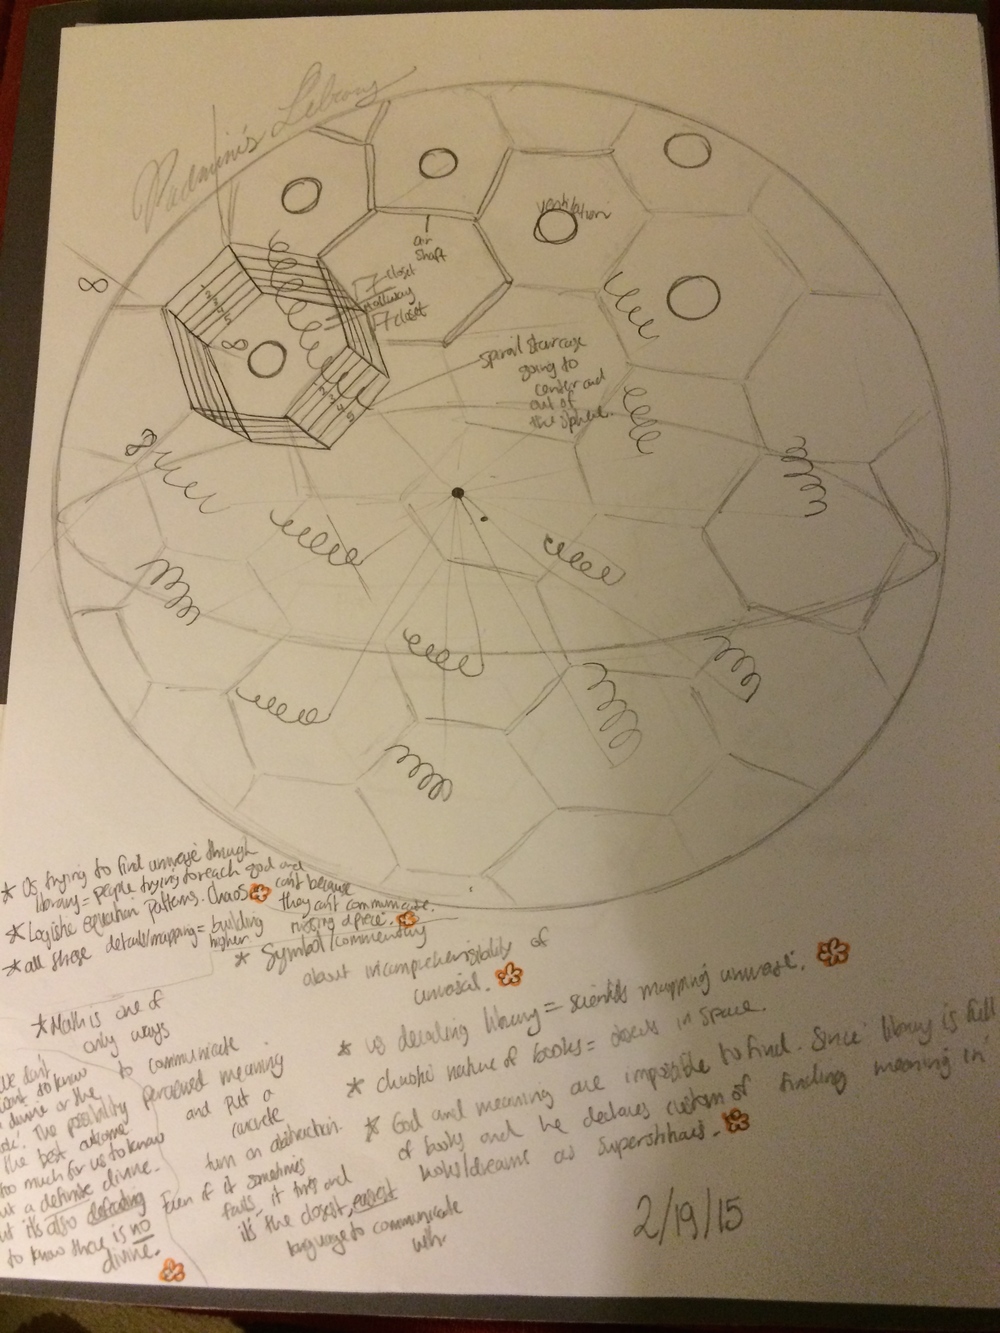 Padmini's Library
ventilation
air
shaft
closet
Hallway
closet
8
8
8
1 2 3 4 5
1 2 3 4 5
spiral staircase
going to
center and
out of
the sphere.
* Us trying to find universe through
library = people trying to reach god and
can't because
they can't communicate.
missing a piece.
* Logistic equation patterns. Chaos
* all these details/mapping = building
higher
* Symbol/commentary
about incomprehensibility of
universal.
* Math is one of
only ways
to communicate
perceived meaning
and put a
concrete
turn on abstraction.
Even if it sometimes
fails, it tries and
it's the closest, easiest
language to communicate
with
We don't
want to know
divine or the
The possibility
the best outcome
too much for us to know
but a definite divine.
but it's also defeating
to know there is no
divine.
* us decoding library = scientists mapping universe.
* chaotic nature of books = objects in space.
* God and meaning are impossible to find. Since library is full
of books and he declares custom of finding meaning in
books/dreams as superstitious.
2/19/15